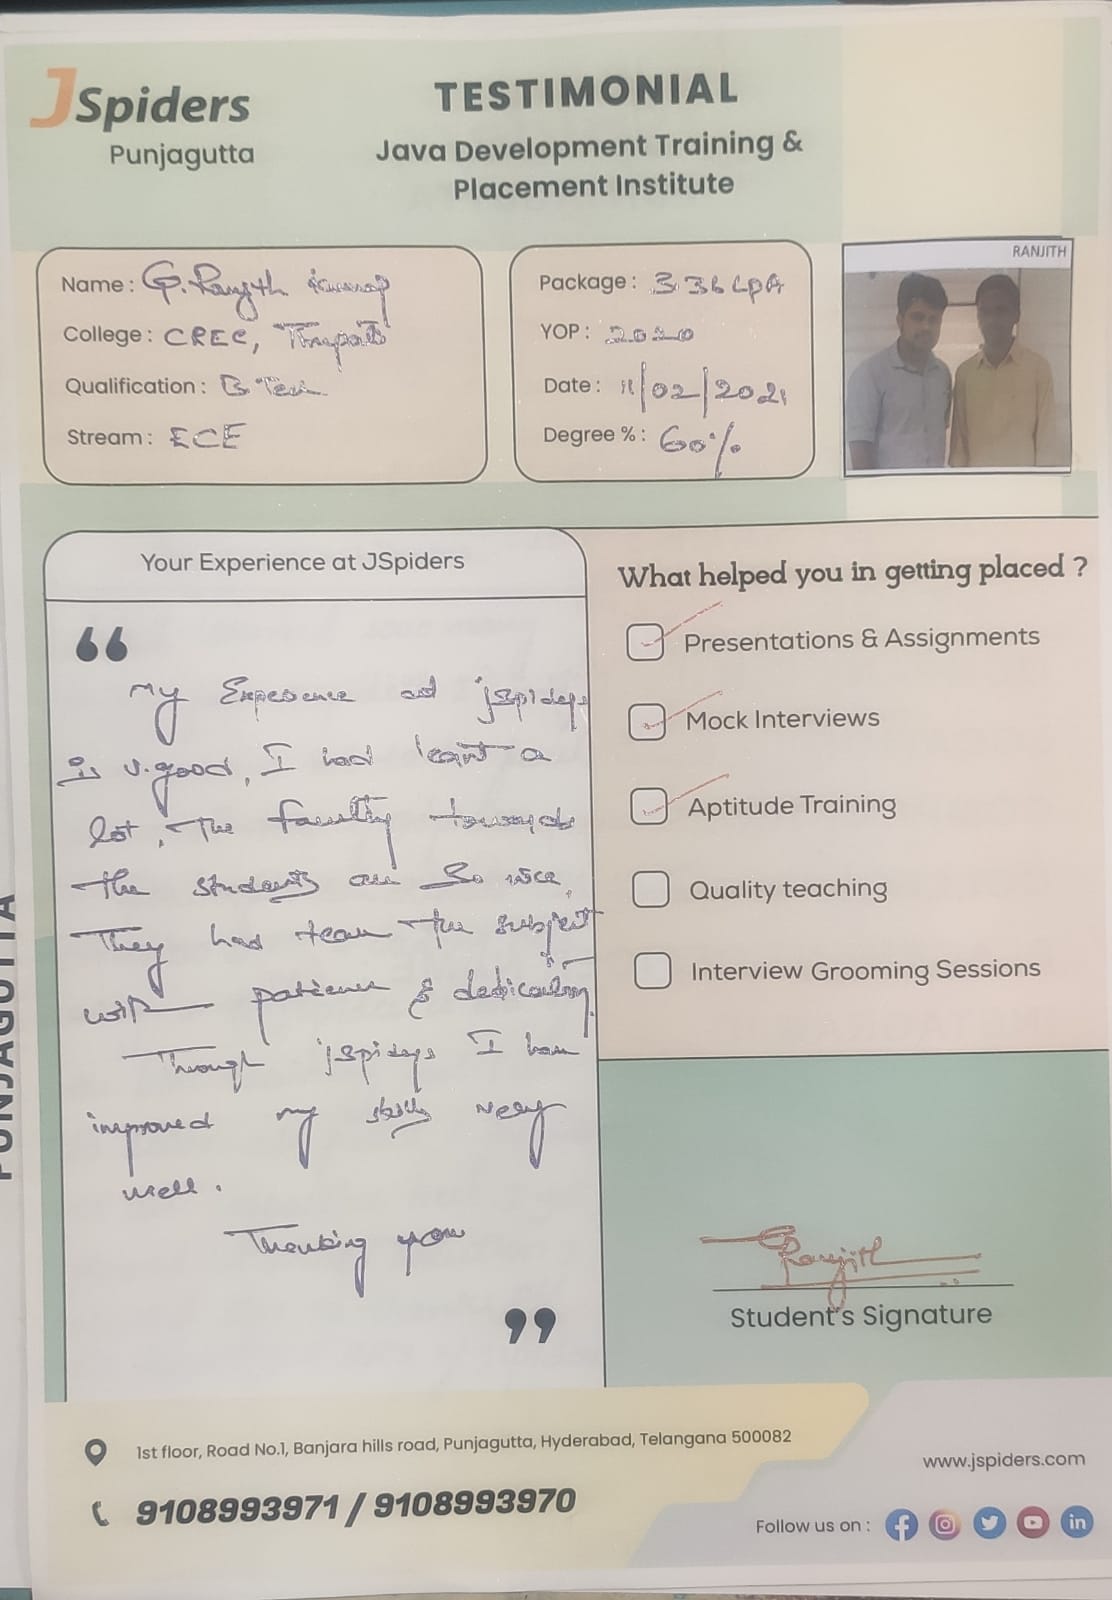 JSpiders
Punjagutta
TESTIMONIAL
Java Development Training &
Placement Institute
Name : G. Ranjith Kumar
College : CREC, Tirupati
Qualification : B.Tech
Stream : ECE
Package : 3.36 LPA
YOP : 2020
Date : 11/02/2021
Degree % : 60%
RANJITH
Your Experience at JSpiders
“
My Experence at jspiders
is v.good, I had learnt a
lot, The faculty towards
the students are so nice,
They had tean the subject
with patience & dedication.
Through jspiders I have
improved my skills very
well.
Thanking you
”
What helped you in getting placed ?
Presentations & Assignments
Mock Interviews
Aptitude Training
Quality teaching
Interview Grooming Sessions
Ranjith
Student's Signature
1st floor, Road No.1, Banjara hills road, Punjagutta, Hyderabad, Telangana 500082
9108993971 / 9108993970
www.jspiders.com
Follow us on :
PUNJAGUTTA